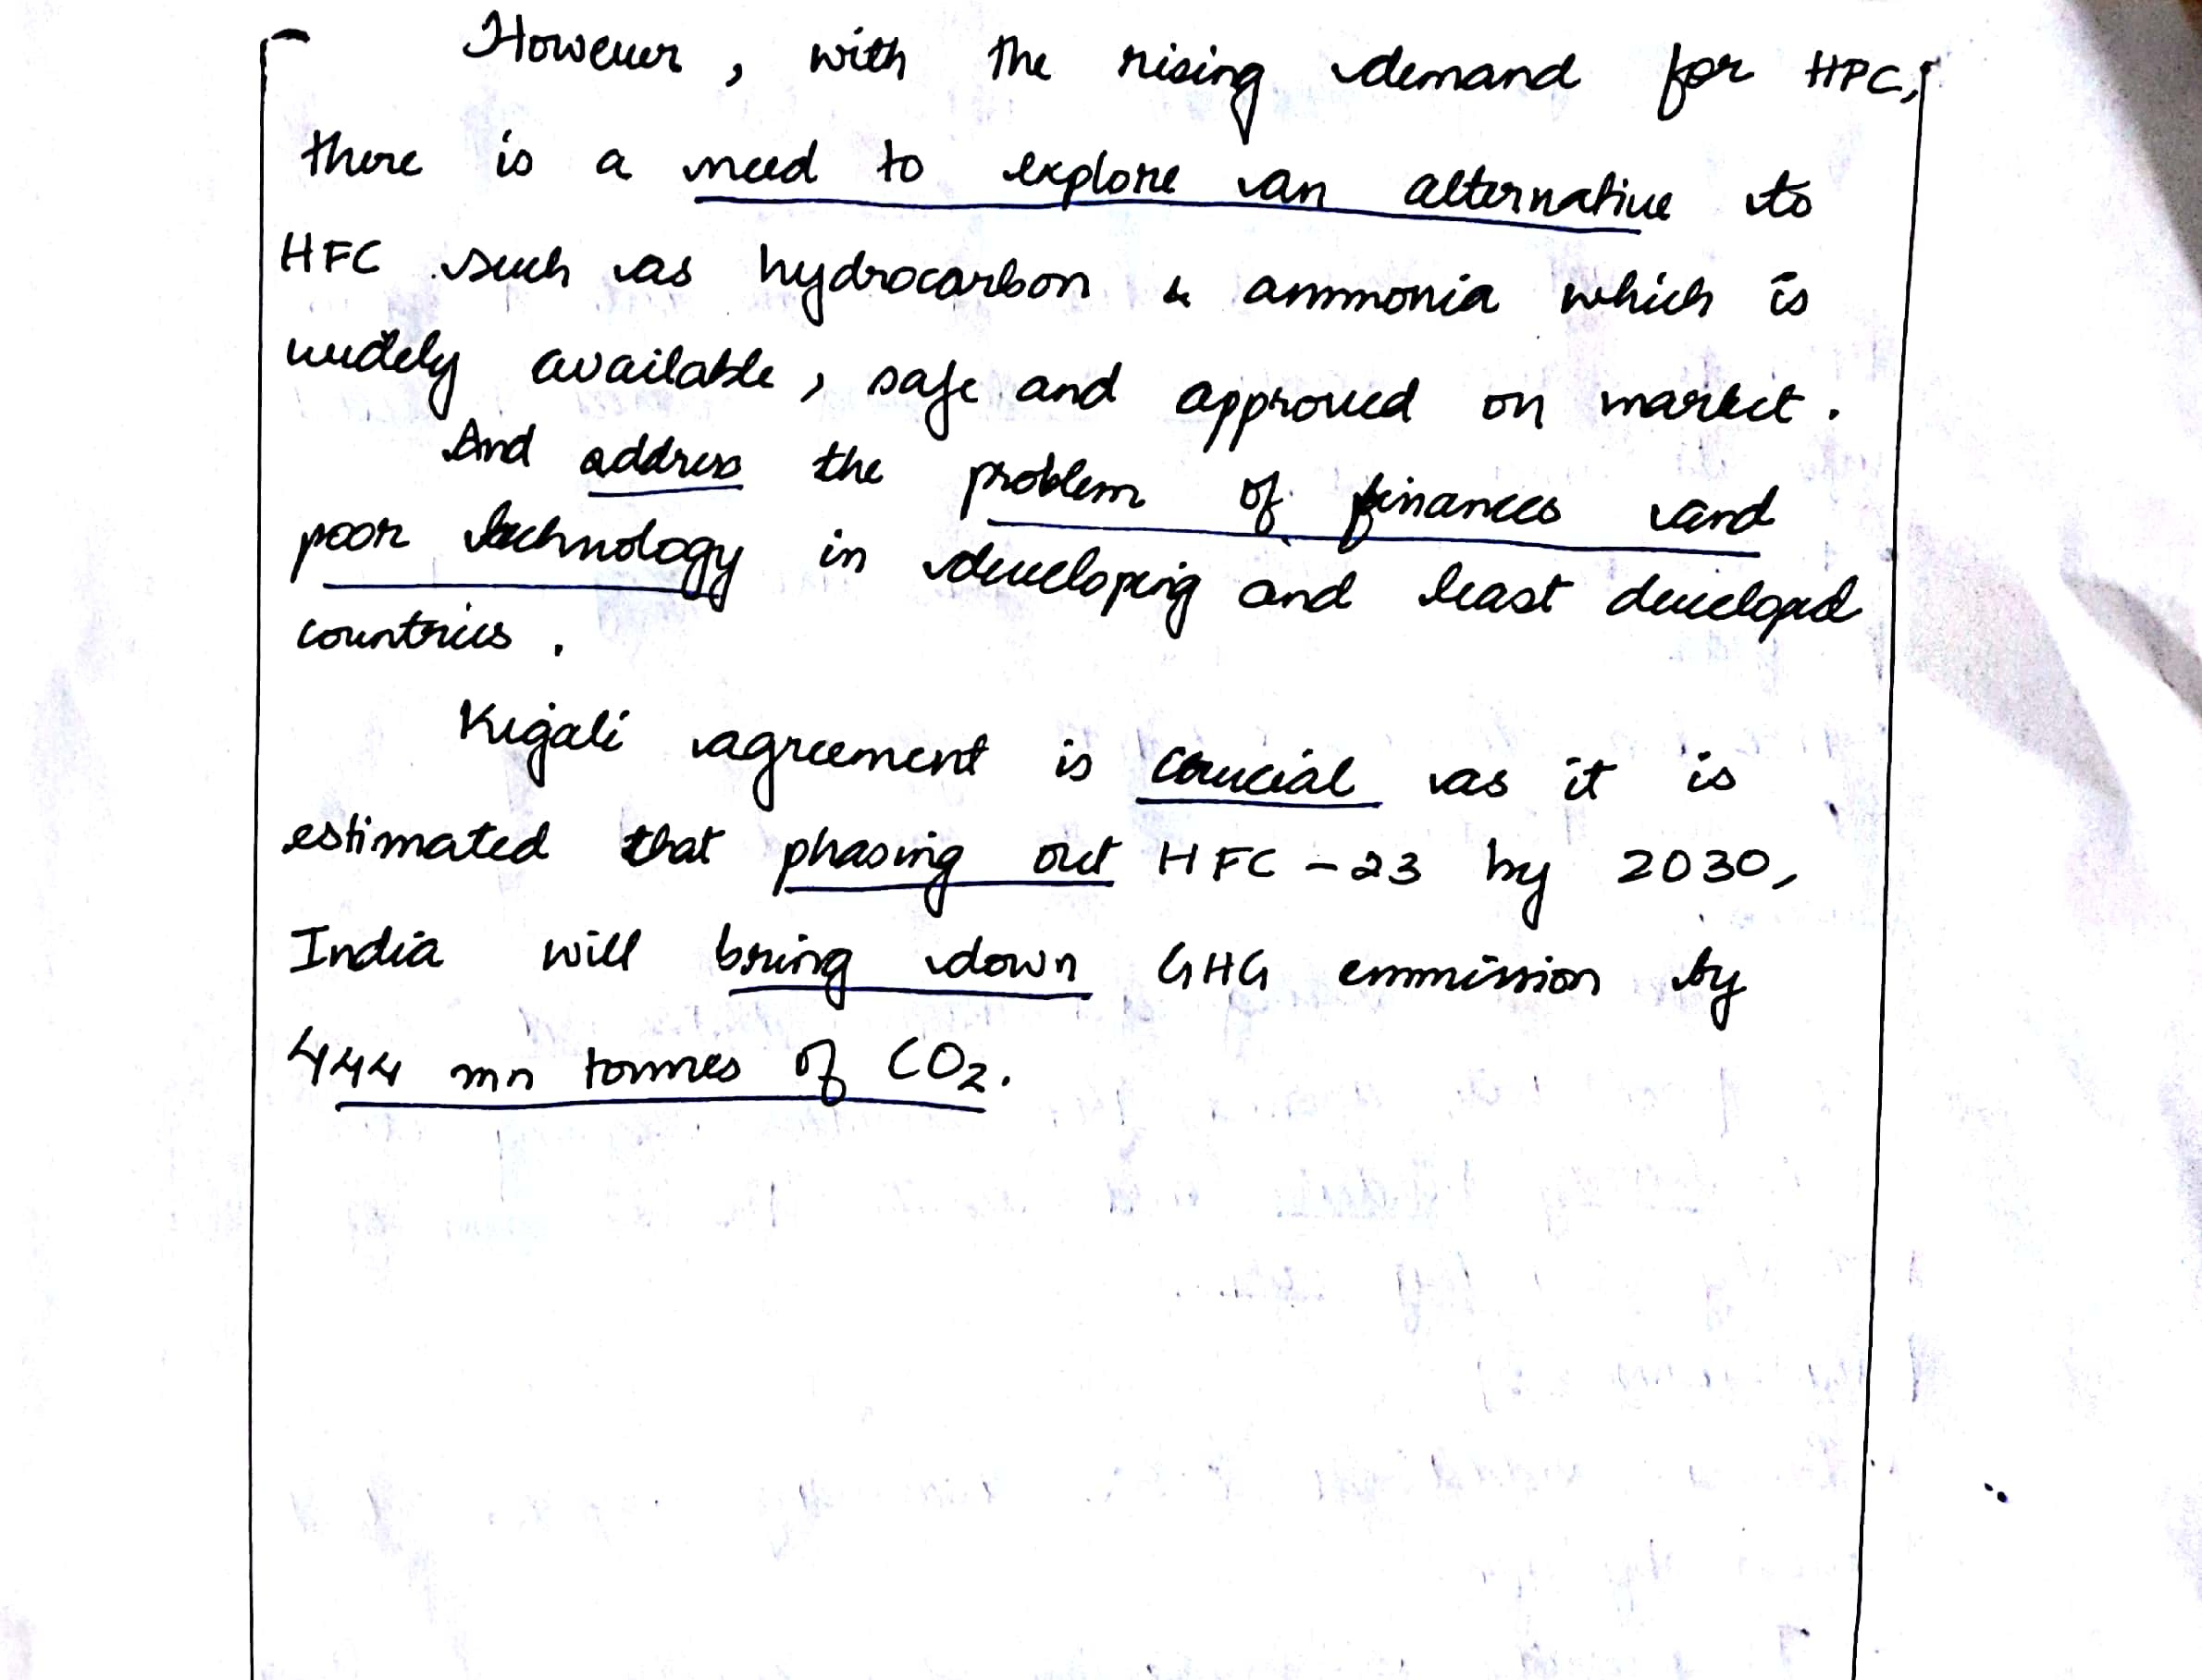 However, with the rising demand for HPC,
there is a need to explore an alternative to
HFC such as hydrocarbon & ammonia which is
widely available, safe and approved on market.
And address the problem of finances and
poor technology in developing and least developed
countries.
Kigali agreement is crucial as it is
estimated that phasing out HFC-23 by 2030,
India will bring down GHG emmission by
444 mn tonnes of CO2.